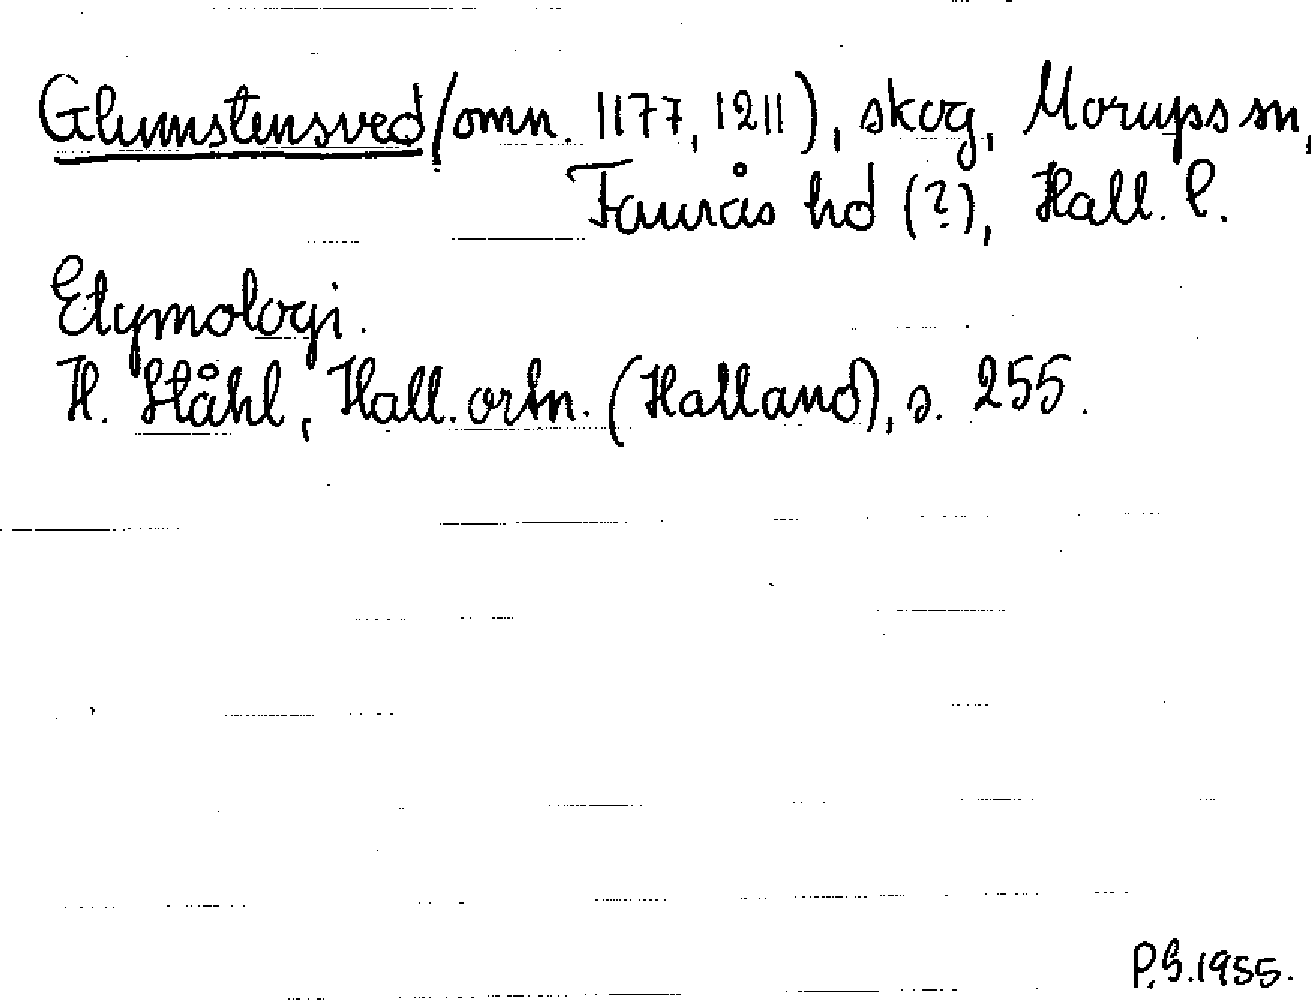 Glumstensved (omn. 1177, 1211), skog, Morups sn,
Faurås hd (?), Hall. l.
Etymologi.
H. Ståhl, Hall. ortn. (Halland), s. 255.
P.G. 1955.